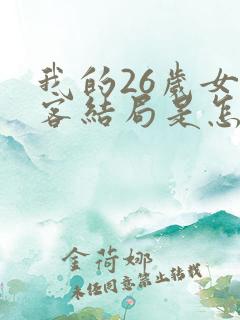 我的26岁女
客结局是怎
金荷娜
未经同意禁止转载